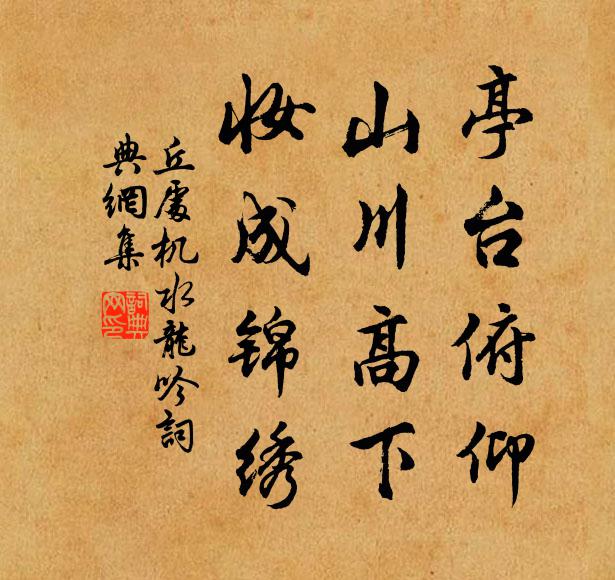 亭台俯仰
山川高下
妆成锦绣
丘處机水龍吟詞
典網集
詞典
网印